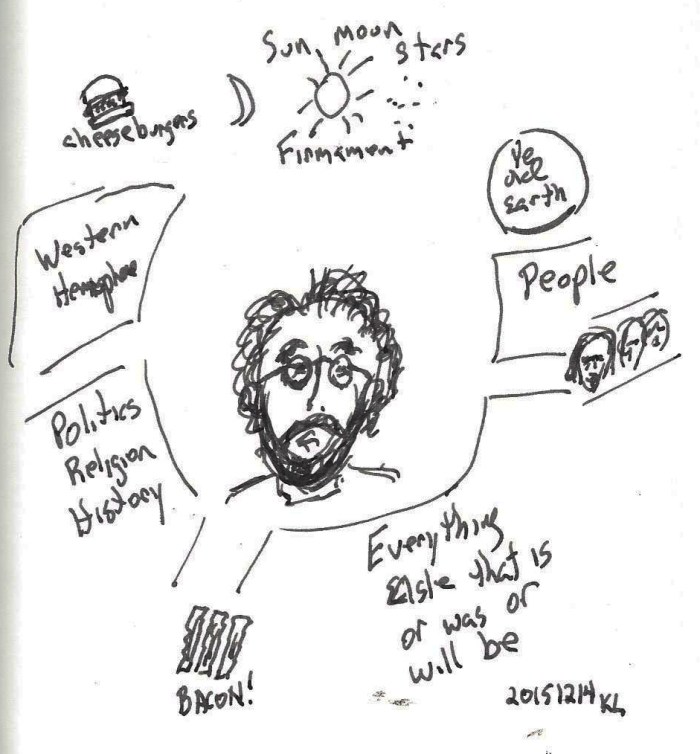 Sun Moon Stars
cheeseburgers
Firmament
Ye
Old
Earth
Western
Hemisphere
People
Politics
Religion
History
Everything
Else that is
or was or
will be
BACON!
20151214 KL